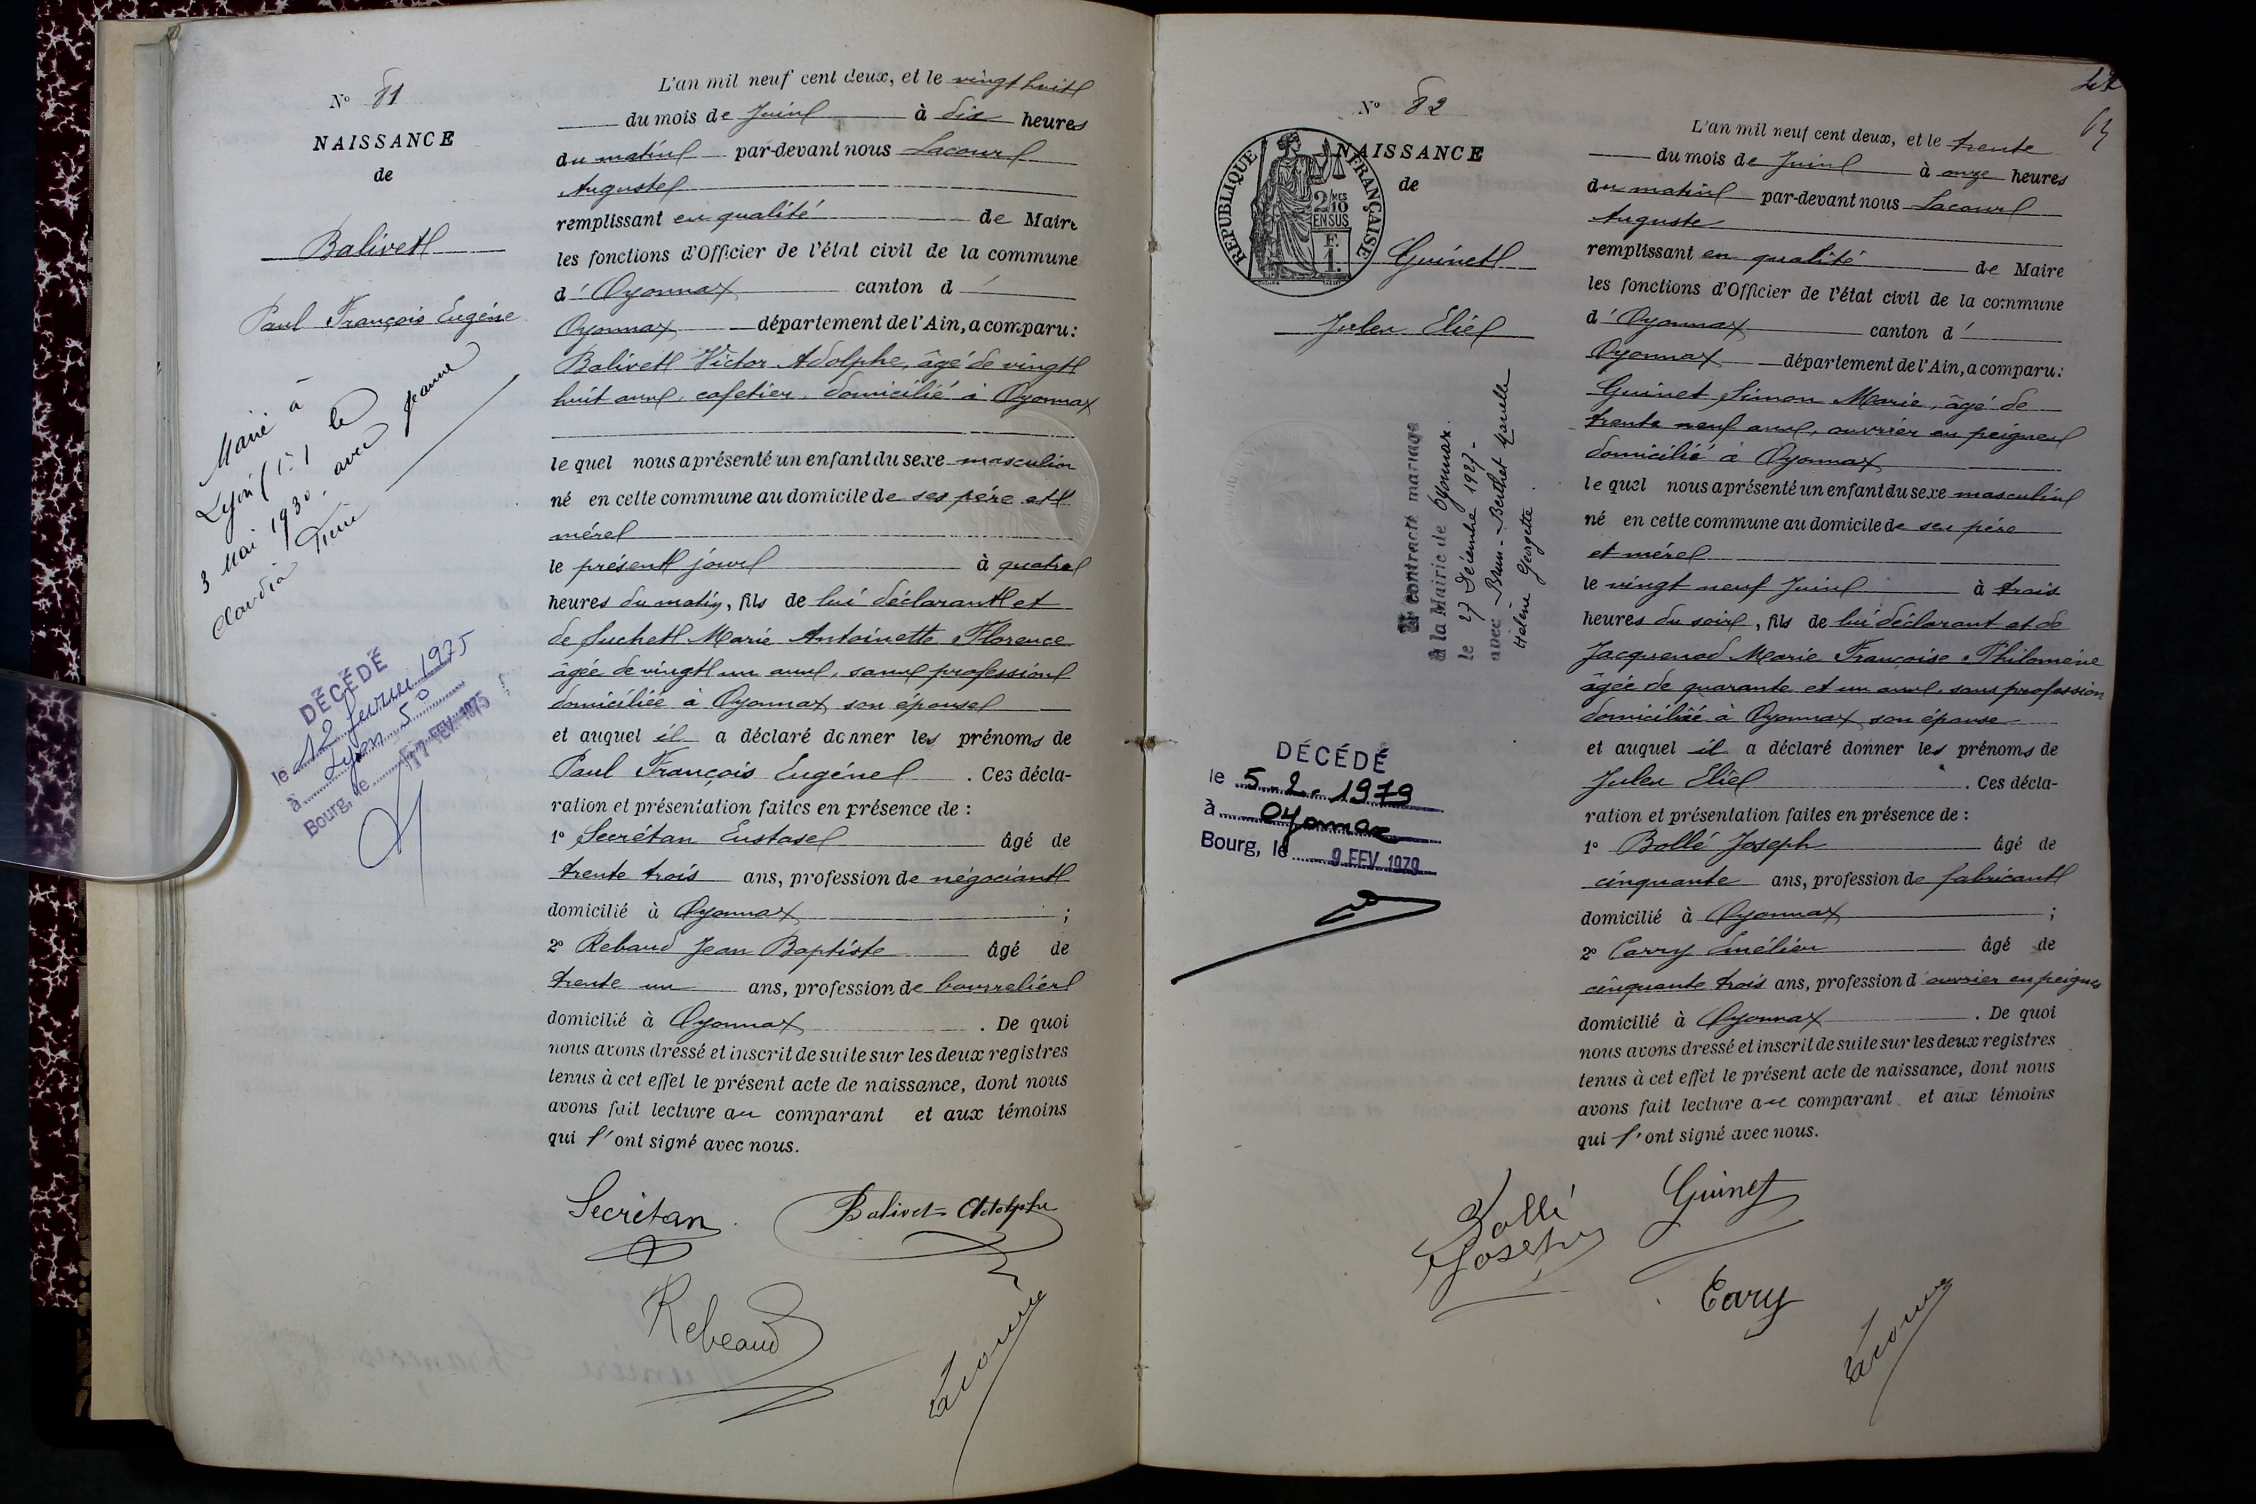 N° 81
NAISSANCE
de
Balivet
Paul François Eugène
Marié à
Lyon (1°) le
3 Mai 1930 avec Jeanne
Claudia
DÉCÉDÉ
le 12 février 1975
à Lyon 5°
Bourg, le 17 FEV. 1975
L'an mil neuf cent deux, et le vingt huit
du mois de Juin à dix heures
du matin par-devant nous Lacour
Auguste
remplissant en qualité de Maire
les fonctions d'Officier de l'état civil de la commune
d'Oyonnax canton d'
Oyonnax département de l'Ain, a comparu:
Balivet Victor Adolphe, âgé de vingt
huit ans, cafetier, domicilié à Oyonnax
le quel nous a présenté un enfant du sexe masculin
né en cette commune au domicile de ses père et
mère
le présent jour à quatre
heures du matin, fils de lui déclarant et
de Suchet Marie Antoinette Florence
âgée de vingt un ans, sans profession
domiciliée à Oyonnax son épouse
et auquel il a déclaré donner les prénoms de
Paul François Eugène. Ces décla-
ration et présentation faites en présence de :
1° Secrétan Eustase âgé de
trente trois ans, profession de négociant
domicilié à Oyonnax ;
2° Rebaud Jean Baptiste âgé de
trente un ans, profession de bourrelier
domicilié à Oyonnax. De quoi
nous avons dressé et inscrit de suite sur les deux registres
tenus à cet effet le présent acte de naissance, dont nous
avons fait lecture au comparant et aux témoins
qui l'ont signé avec nous.
Secrétan Balivet Adolphe
Rebeaud
Lacour
64
N° 82
NAISSANCE
de
REPUBLIQUE FRANÇAISE
2/10 MES
EN SUS
F.
1.
Guinet
Jules Eliel
a contracté mariage
à la Mairie de Oyonnax.
le 27 Décembre 1927 -
avec Brun-Berthet
Hélène Georgette.
DÉCÉDÉ
le 5.2.1979
à Oyonnax
Bourg, le 9 FEV 1979
L'an mil neuf cent deux, et le trente
du mois de Juin à onze heures
du matin par-devant nous Lacour
Auguste
remplissant en qualité de Maire
les fonctions d'Officier de l'état civil de la commune
d'Oyonnax canton d'
Oyonnax département de l'Ain, a comparu:
Guinet Simon Marie, âgé de
trente neuf ans, ouvrier en peignes
domicilié à Oyonnax
le quel nous a présenté un enfant du sexe masculin
né en cette commune au domicile de ses père
et mère
le vingt neuf Juin à trois
heures du soir, fils de lui déclarant et de
Jacquenod Marie Françoise Philomène
âgée de quarante et un ans, sans profession
domiciliée à Oyonnax son épouse
et auquel il a déclaré donner les prénoms de
Jules Eliel. Ces décla-
ration et présentation faites en présence de :
1° Bollé Joseph âgé de
cinquante ans, profession de fabricant
domicilié à Oyonnax ;
2° Carry Emélien âgé de
cinquante trois ans, profession d'ouvrier en peignes
domicilié à Oyonnax. De quoi
nous avons dressé et inscrit de suite sur les deux registres
tenus à cet effet le présent acte de naissance, dont nous
avons fait lecture au comparant et aux témoins
qui l'ont signé avec nous.
Bollé Guinet
Joseph
Cary
Lacour